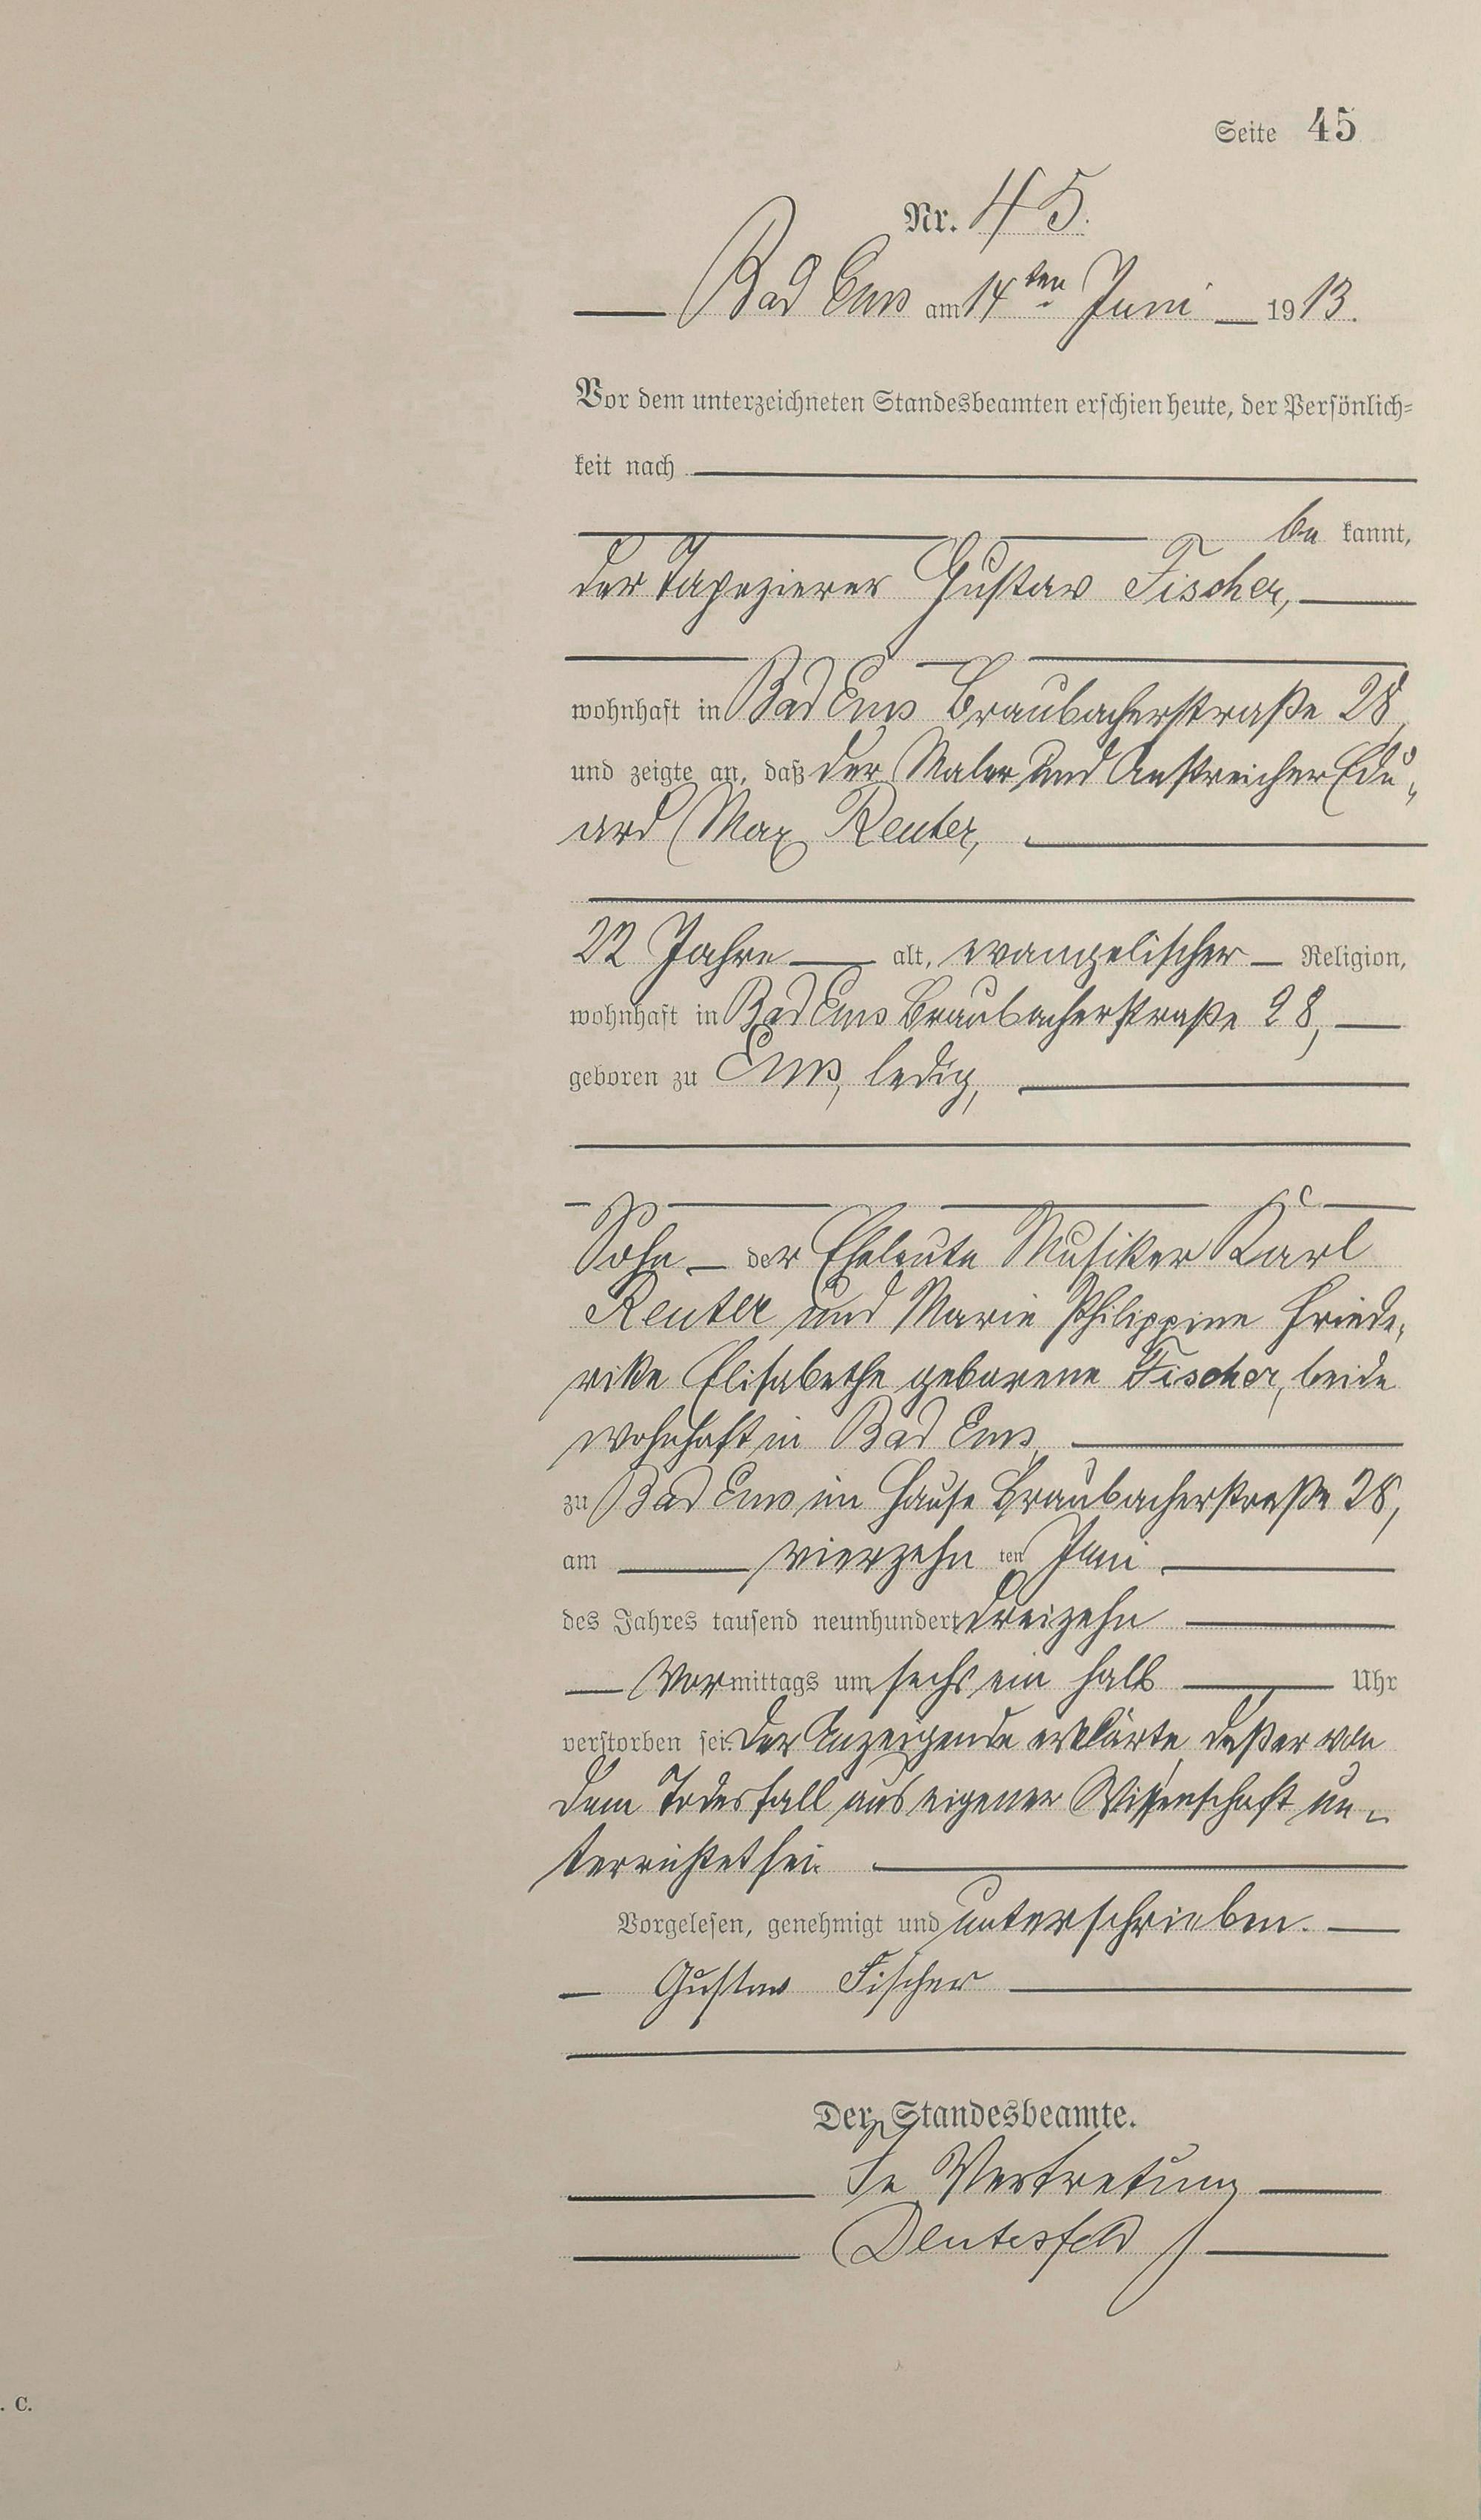 Seite 45
Nr. 45.
Bad Ems am 14ten Juni 1913.
Vor dem unterzeichneten Standesbeamten erschien heute, der Persönlich=
keit nach
be kannt,
der Tapezierer Gustav Fischer,
wohnhaft in Bad Ems Braubacherstraße 28,
und zeigte an, daß der Maler und Anstreicher Edu„
ard Max Reuter,
22 Jahre alt, evangelischer Religion,
wohnhaft in Bad Ems Braubacherstraße 28,
geboren zu Ems, ledig,
Sohn der Eheleute Musiker Karl
Reuter und Marie Philippine Friede„
rike Elisabethe geborene Fischer, beide
wohnhaft in Bad Ems,
zu Bad Ems im Hause Braubacherstraße 28,
am vierzehn ten Juni
des Jahres tausend neunhundert dreizehn
Vormittags um sechs ein halb Uhr
verstorben sei. Der Anzeigende erklärte, daß er von
dem Todesfall aus eigener Wissenschaft un„
terrichtet sei.
Vorgelesen, genehmigt und unterschrieben.
Gustav Fischer
Der Standesbeamte.
In Vertretung
. C.